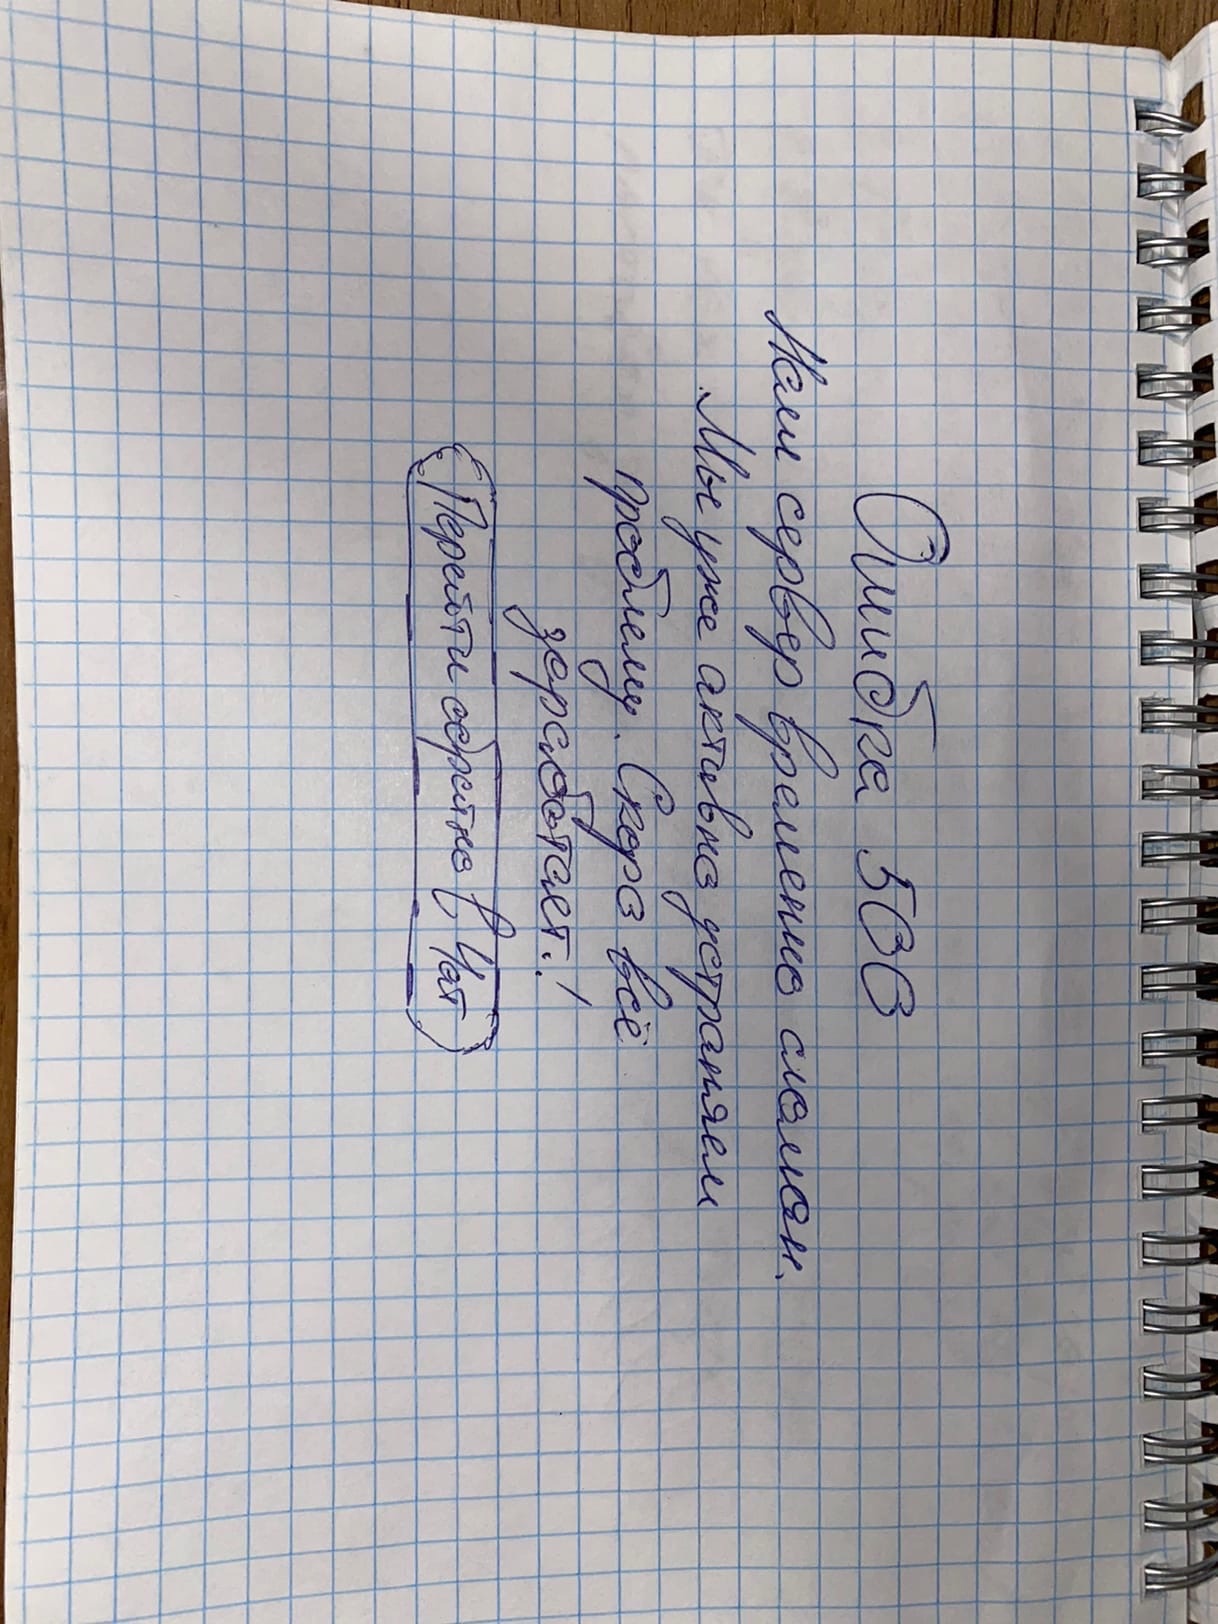 Ошибка 500
Наш сервер временно сломан.
Мы уже активно устраняем
проблему. Скоро всё
заработает!
Перейти обратно в Чат